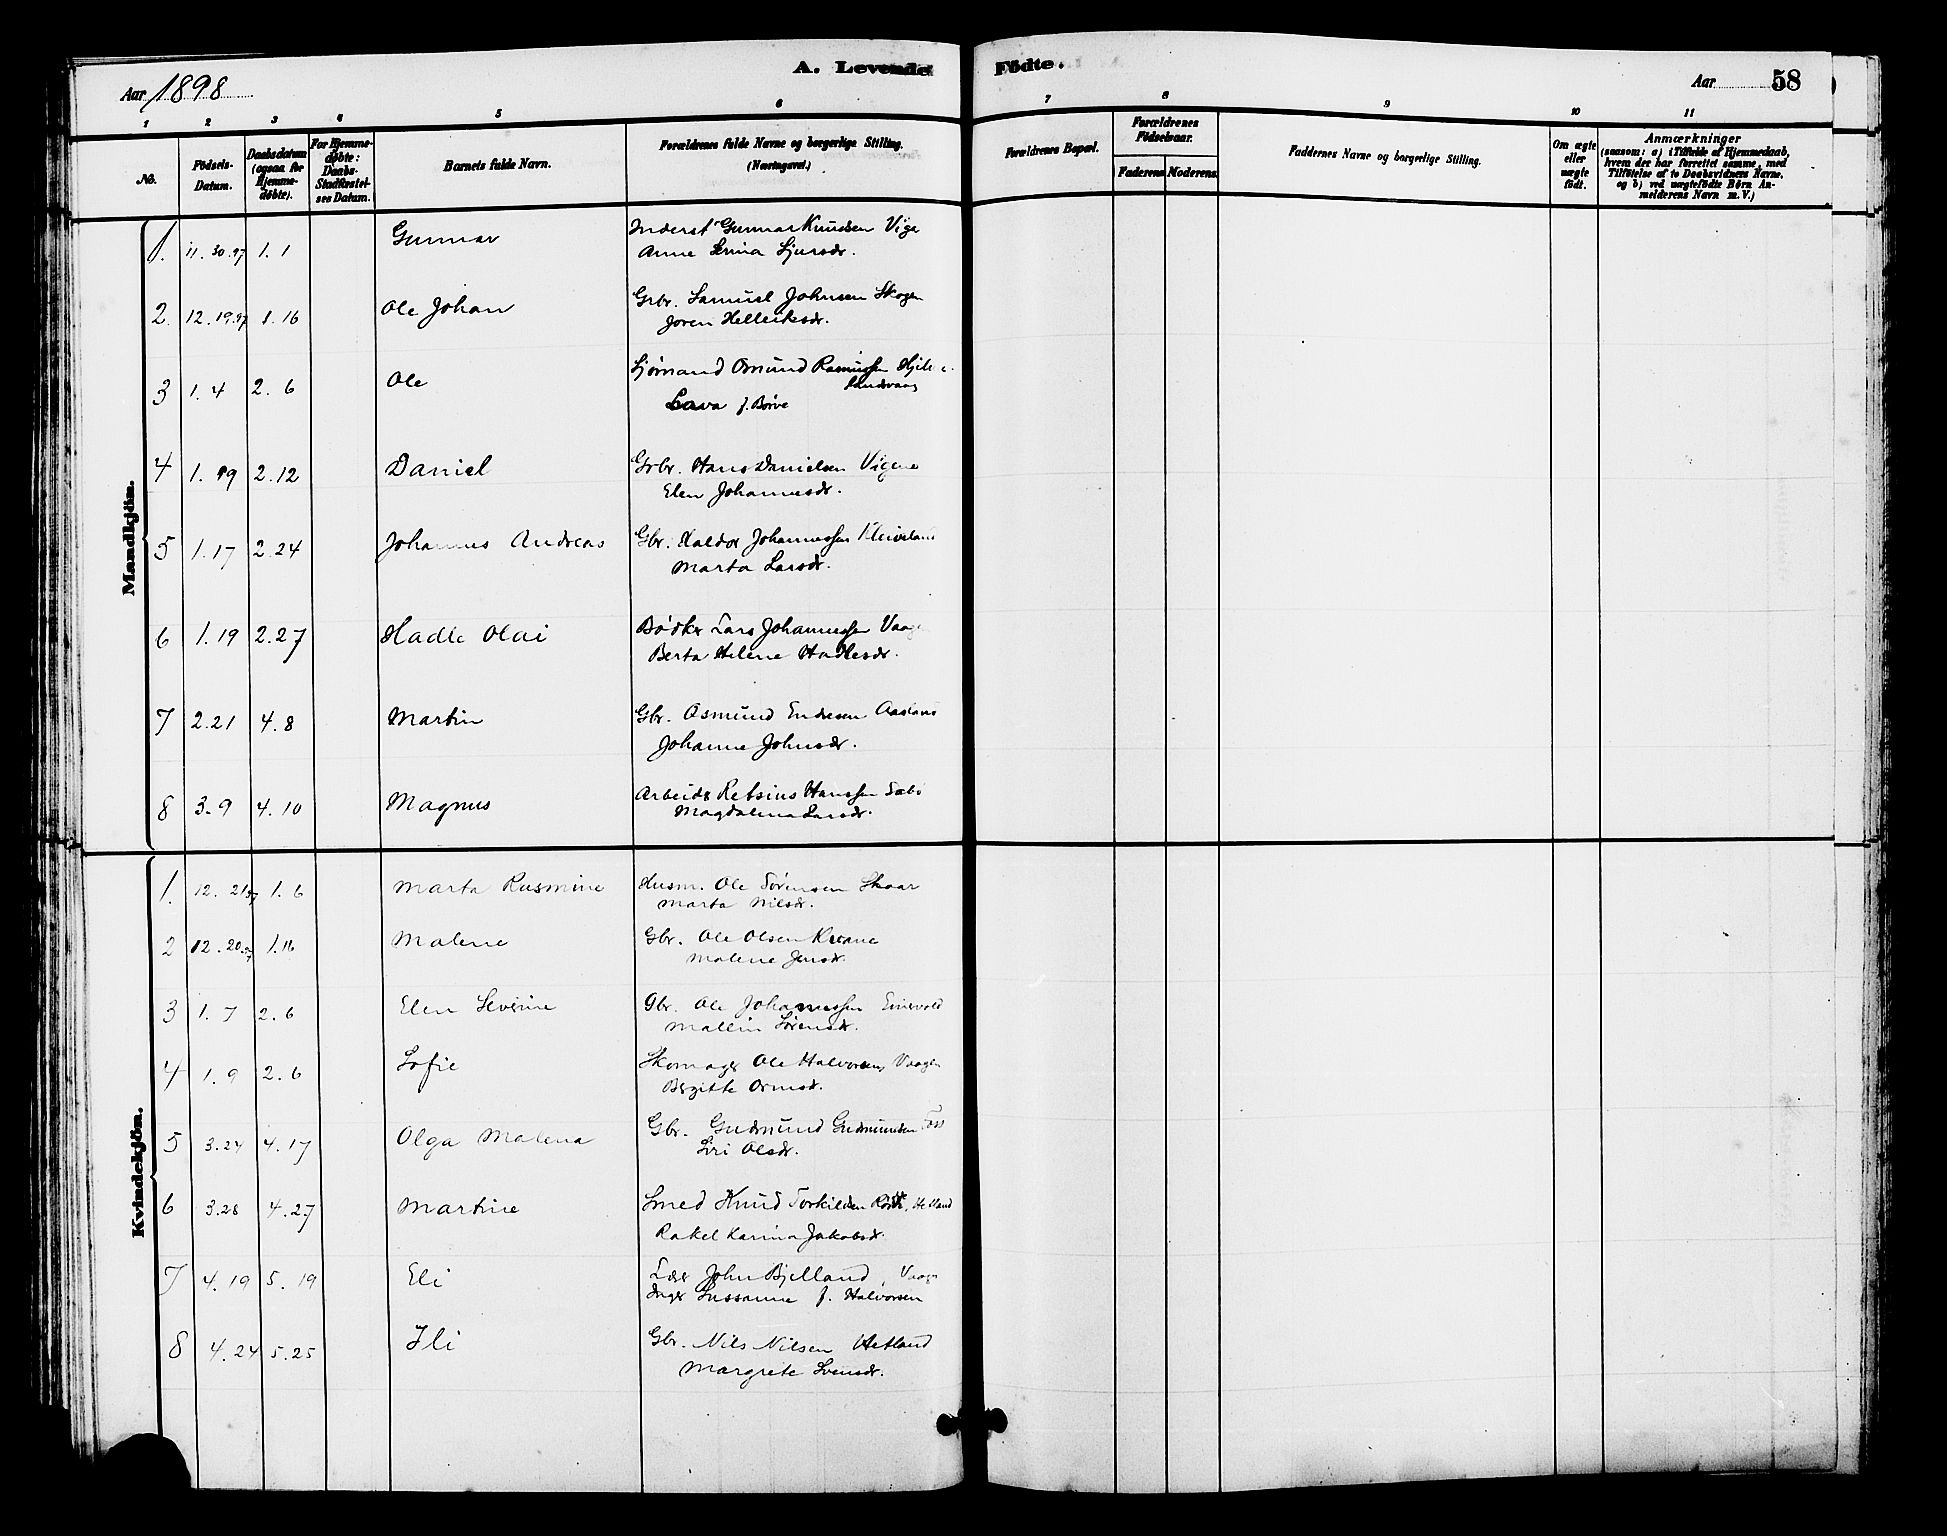 A. Levende Födte.
Aar 1898
Aar 58
1 2 3 4 5 6 7 8 9 10 11
No.
Födsels-Datum.
Daabsdatum (ogsaa for Hjemme-döbte).
For Hjemme-döbte: Daabs-Stadfæstel-ses Datum.
Barnets fulde Navn.
Forældrenes fulde Navne og borgerlige Stilling. (Næringsvei.)
Forældrenes Bopæl.
Forældrenes Födselsaar.
Faderens Moderens.
Faddernes Navne og borgerlige Stilling.
Om ægte eller uægte födt.
Anmærkninger (saasom: a) i Tilfælde af Hjemmedaab, hvem der har forrettet samme, med Tilföielse af to Daabsvidners Navne, og b) ved uægtefödte Börn An-melderens Navn m. V.)
Mandkjön.
1. 11. 30. 97 1. 1 Gunnar Inderst Gunnar Knudsen Viga
Anne Serina Sjursdr.
2. 12. 19. 97 1. 16 Ole Johan Gbr. Samuel Johnsen Skogen
Joren Helleiksdr.
3 1. 4 2. 6 Ole Sjömand Osmund Rasmussen
landsvaag
f. Börve
4 1. 19 2. 12 Daniel Gbr. Hans Danielsen Vigene
Elen Johannesdr.
5 1. 17 2. 24 Johannes Andreas Gbr. Haldor Johannessen Kleiveland
Marta Larsdr.
6 1. 19 2. 27 Hadle Olai Bödker Lars Johannessen Vaage
Berta Helene Hadlesdr.
7 2. 21 4. 8 Martin Gbr. Osmund Endresen Aasland
Johanne Johnsdr.
8 3. 9 4. 10 Magnus Arbeider Retsius Hanssen Sæbö
Magdalena Larsdr.
Kvindekjön.
1. 12. 21. 97 1. 6 Marta Rasmine Husm. Ole Sörensen Skaar
Marta Nilsdr.
2 12. 20. 97 1. 16 Malene Gbr. Ole Olsen
Malene Jensdr.
3 1. 7 2. 6 Elen Severine Gbr. Ole Johannessen Eiervold
Mallin Sörensdr.
4 1. 9 2. 6 Sofie Skomager Ole Halvorsen, Vaagen
Bergitte Ormsdr.
5 3. 24 4. 17 Olga Malena Gbr. Gudmund Gudmundsen Foss
Siri Olsdr.
6 3. 28 4. 27 Martine Smed Knud Torkildsen Hetland
Rakel Karina Jakobsdr.
7 4. 19 5. 19 Eli Lærer John Bjelland, Vaage
Inger Sussanne f. Halvorsen
8 4. 24 5. 25 Ili Gbr. Nils Nilsen Hetland
Margrete Svensdr.